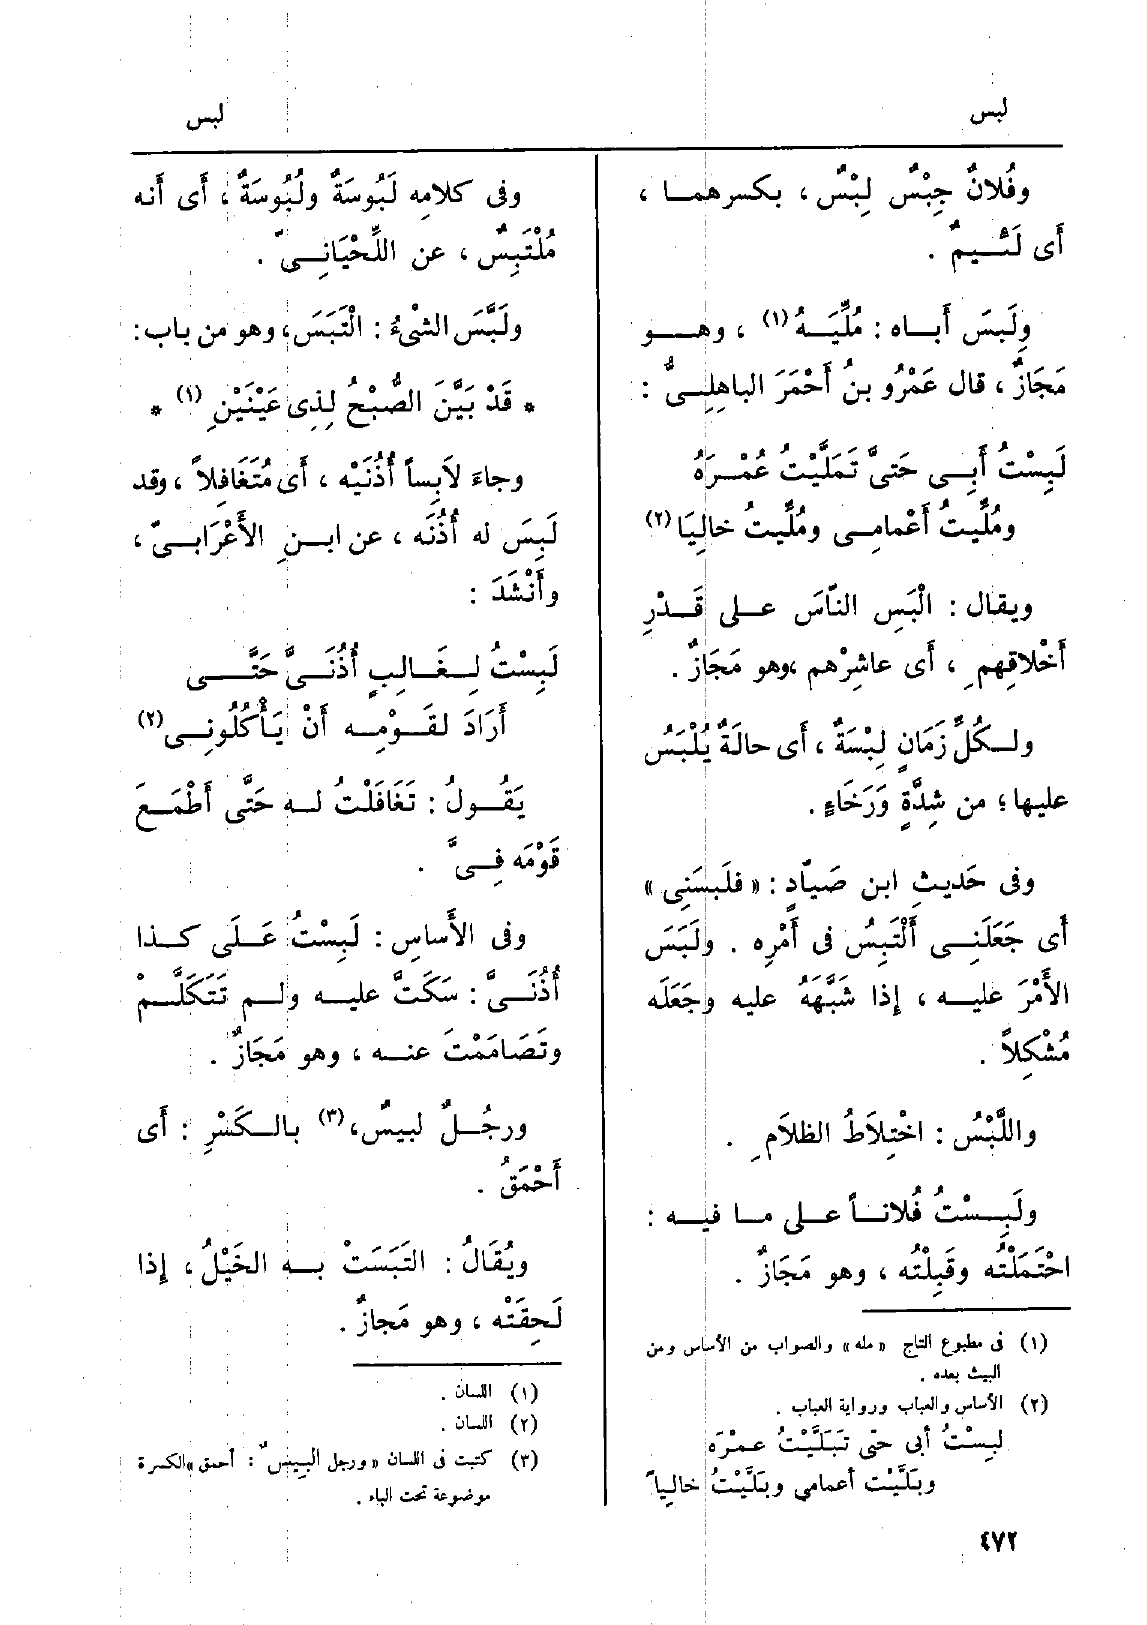 لبس
لبس
وفُلانٌ جِبْسٌ لِبْسٌ ، بكسرهمـا ،
أَى لَئِـيمٌ .
ولَبِسَ أَبـاه : مُلِّيَـهُ (١) ، وهـو
مَجَازٌ ، قال عَمْرُو بنُ أَحْمَرَ الباهِلِـىُّ :
لَبِسْتُ أَبِـى حَتَّى تَمَلَّيْتُ عُمْـرَهُ
ومُلِّيتُ أَعْمامِـى ومُلِّيتُ خالِيَا (٢)
ويقال : الْبَسِ النّاسَ عـلى قَـدْرِ
أَخْلاقِهِم ، أَى عاشِرْهم ،وهو مَجَازٌ .
ولـكُلِّ زَمَانٍ لِبْسَةٌ ، أَى حالَةٌ يُلْبَسُ
عليها ؛ من شِدَّةٍ وَرَخَاءٍ .
وفى حَديثِ ابن صَيّادٍ : « فلَبَسَنِى »
أَى جَعَلَنِـى أَلْتَبِسُ فى أَمْرِه . ولَبَسَ
الأَمْرَ عليـه ، إِذا شَبَّهَهُ عليه وجَعَلَه
مُشْكِلاً .
واللَّبْسُ : اخْتِلاَطُ الظلاَمِ .
ولَبِـسْتُ فُلانـاً عـلى مـا فيـه :
احْتَمَلْتُه وقَبِلْتُه ، وهو مَجَازٌ .
(١) فى مطبوع التاج « مله » والصواب من الأساس ومن
البيت بعده .
(٢) الأساس والعباب ورواية العباب .
لبِسْتُ أبى حتى تَبَلَّيْتُ عمْرَه
وبَلَّيْت أعمامي وبَلَّيْتُ خالياً
وفى كلامِه لَبُوسَةٌ ولُبُوسَةٌ ، أَى أَنه
مُلْتَبِسٌ ، عن اللِّحْيَانِـىّ .
ولَبَّسَ الشىْءُ : الْتَبَسَ ، وهو من باب :
* قَدْ بَيَّنَ الصُّبْحُ لِذِى عَيْنَيْنِ (١) *
وجاءَ لاَبِساً أُذُنَيْه ، أَى مُتَغَافِلاً ، وقد
لَبِسَ له أُذُنَه ، عن ابـنِ الأَعْرَابـىّ ،
وأَنْشَدَ :
لَبِسْتُ لِـغَـالِبٍ أُذُنَـىَّ حَتَّـى
أَرَادَ لقَـوْمِـه أَنْ يَـأْكُلُونِـى (٢)
يَقُـولُ : تَغَافَلْتُ لـه حَتَّى أَطْمَـعَ
قَوْمَه فِـىَّ .
وفى الأَساسِ : لَبِسْتُ عَـلَى كـذا
أُذُنَـىَّ : سَكَتَّ عليـه ولـم تَتَكَلَّـمْ
وتَصَامَمْتَ عنـه ، وهو مَجَازٌ .
ورجُـلٌ لبيسٌ ، (٣) بالـكَسْرِ : أَى
أَحْمَقُ .
ويُقَالُ : التَبَسَتْ بـه الخَيْلُ ، إِذا
لَحِقَتْه ، وهو مَجازٌ .
(١) اللسان .
(٢) اللسان .
(٣) كتبت فى اللسان « ورجل البِيسٌ : أحمق » الكسرة
موضوعة تحت الباء .
٤٧٢